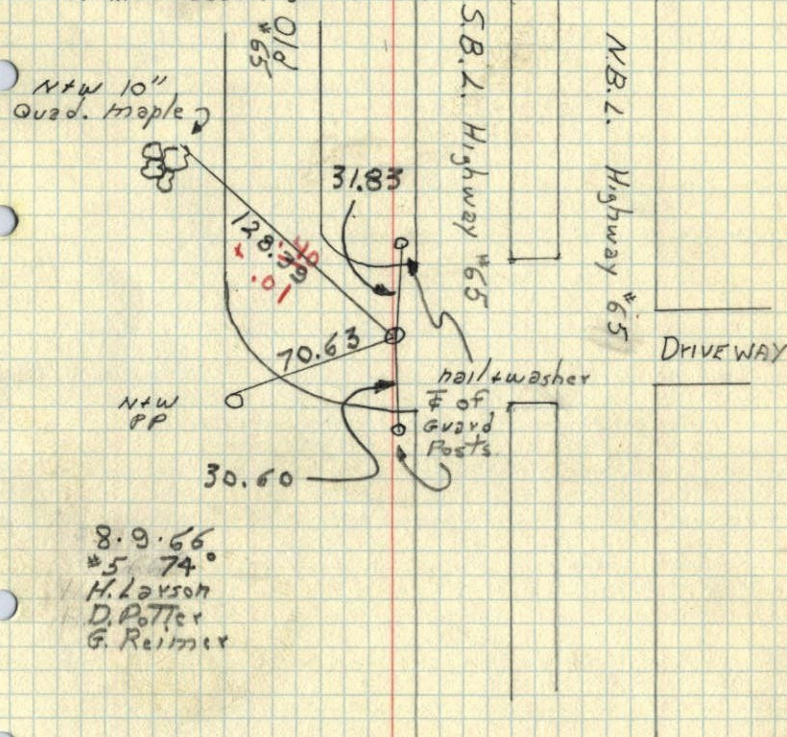 Old
#65
S.B.L. Highway #65
N.B.L. Highway #65
N+W 10"
Quad. Maple
31.83
128.39
.40
+.01
70.63
DRIVEWAY
nail+washer
℄ of
Guard
Posts
N+W
PP
30.60
8.9.66
#5 74°
H. Larson
D. Potter
G. Reimer